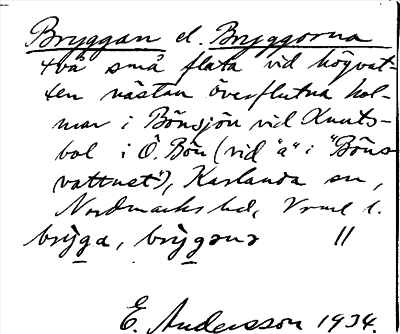 Bryggan el. Bryggorna
två små flata vid högvat-
ten nästan överflutna hol-
mar i Bönsjön vid Knuts-
bol i Ö. Bön (vid "a" i "Böns
vattnet"), Karlanda sn,
Nordmarks hd, Vrml l.
brýga, brýgəno ||
E. Andersson 1934.